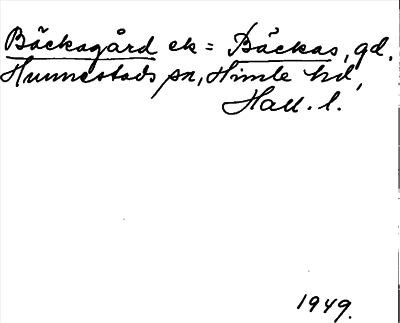 Bäckagård ek = Bäckas, gd.
Hunnestads sn, Himle hd,
Hall. l.
1949.